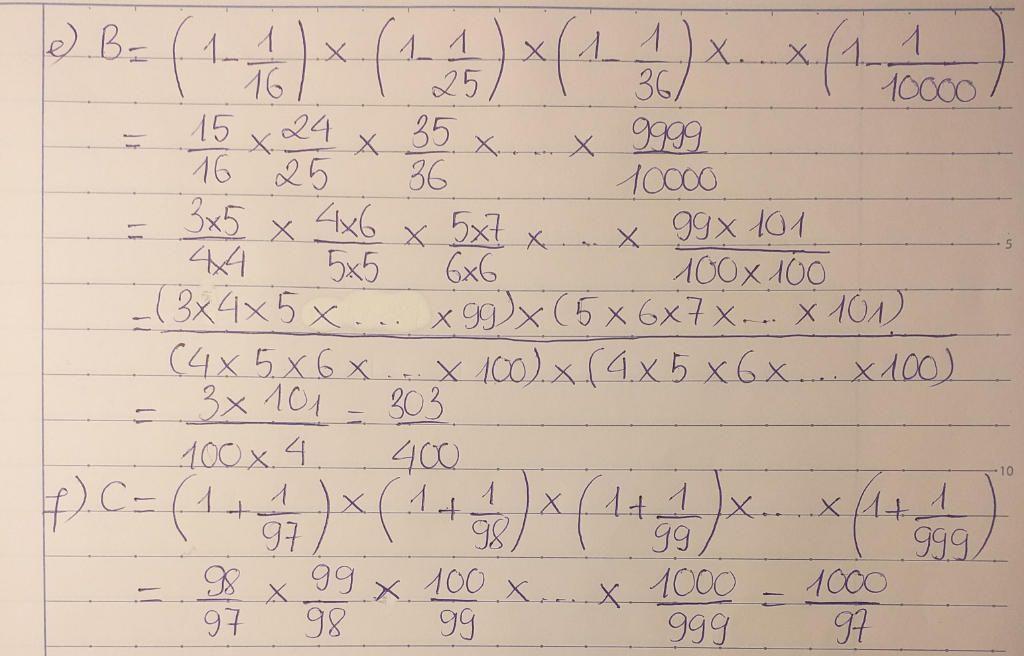 e) B = (1 - 1/16) × (1 - 1/25) × (1 - 1/36) × .... × (1 - 1/10000)
= 15/16 × 24/25 × 35/36 × .... × 9999/10000
= 3×5/4×4 × 4×6/5×5 × 5×7/6×6 × ... × 99×101/100×100
5
= (3×4×5 × .... ×99)×(5×6×7×.... ×101)/(4×5×6×.... ×100)×(4×5×6×.... ×100)
= 3×101/100×4 = 303/400
10
f) C = (1 + 1/97) × (1 + 1/98) × (1 + 1/99) × .... × (1 + 1/999)
= 98/97 × 99/98 × 100/99 × ... × 1000/999 = 1000/97